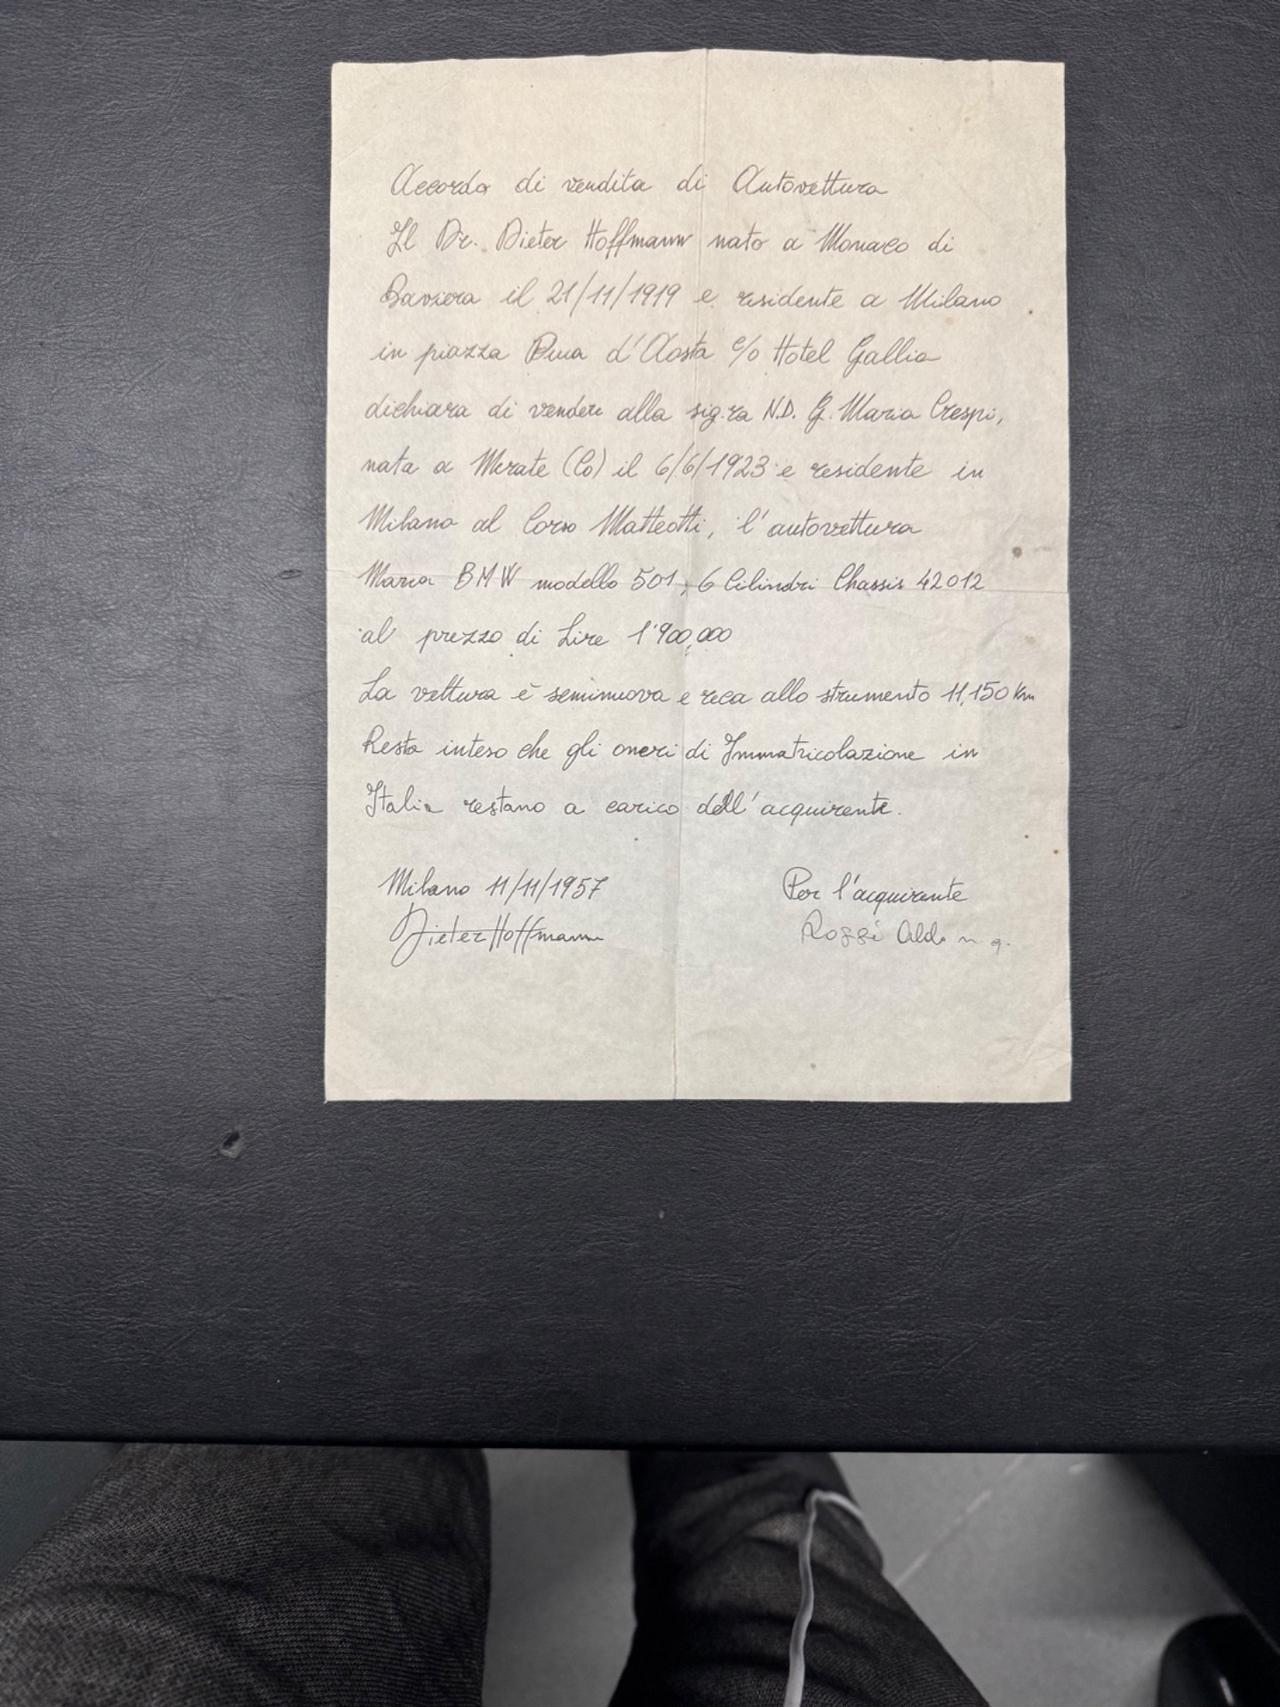 Accordo di vendita di Autovettura
Il Dr. Dieter Hoffmann nato a Monaco di
Baviera il 21/11/1919 e residente a Milano
in piazza Duca d'Aosta c/o Hotel Gallia
dichiara di vendere alla sig.ra N.D. G. Maria Crespi,
nata a Merate (Co) il 6/6/1923 e residente in
Milano al Corso Matteotti, l'autovettura
Marca BMW modello 501, 6 Cilindri Chassis 42012
al prezzo di Lire 1'900,000
La vettura è seminuova e reca allo strumento 11,150 Km
Resta inteso che gli oneri di Immatricolazione in
Italia restano a carico dell'acquirente.
Milano 11/11/1957
Dieter Hoffmann
Per l'acquirente
Rossi Aldo n. q.